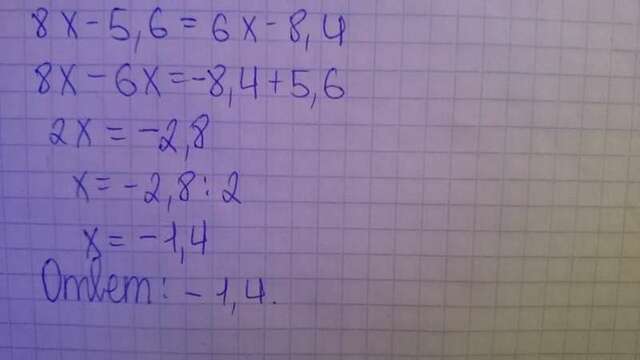 8x-5,6=6x-8,4
8x-6x=-8,4+5,6
2x=-2,8
x=-2,8:2
x=-1,4
Ответ: -1,4.